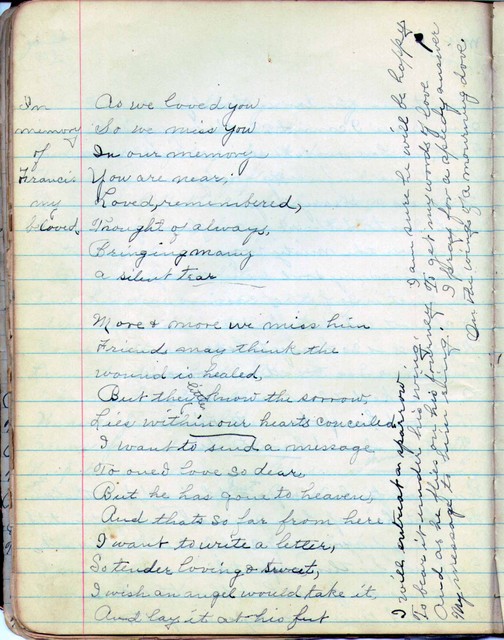 In
memory
of
Francis
my
beloved.
As we loved you
So we miss you
In our memory
You are near;
Loved, remembered,
Thought of always,
Bringing many
a silent tear
More & more we miss him
Friends may think the
wound is healed,
But they know the sorrow,
Lies within our hearts concealed
I want to send a message
To one I love so dear
But he has gone to heaven,
And thats so far from here
I want to write a letter,
So tender loving & sweet,
I wish an angel would take it,
And lay it at his feet
I will entreat a sparrow
To bear it under his wing,
And as he flies on his
My message to him bring.
I am sure he will be happy
To get my words of love
I pray for a speedy answer
On the wings of a mourning dove.